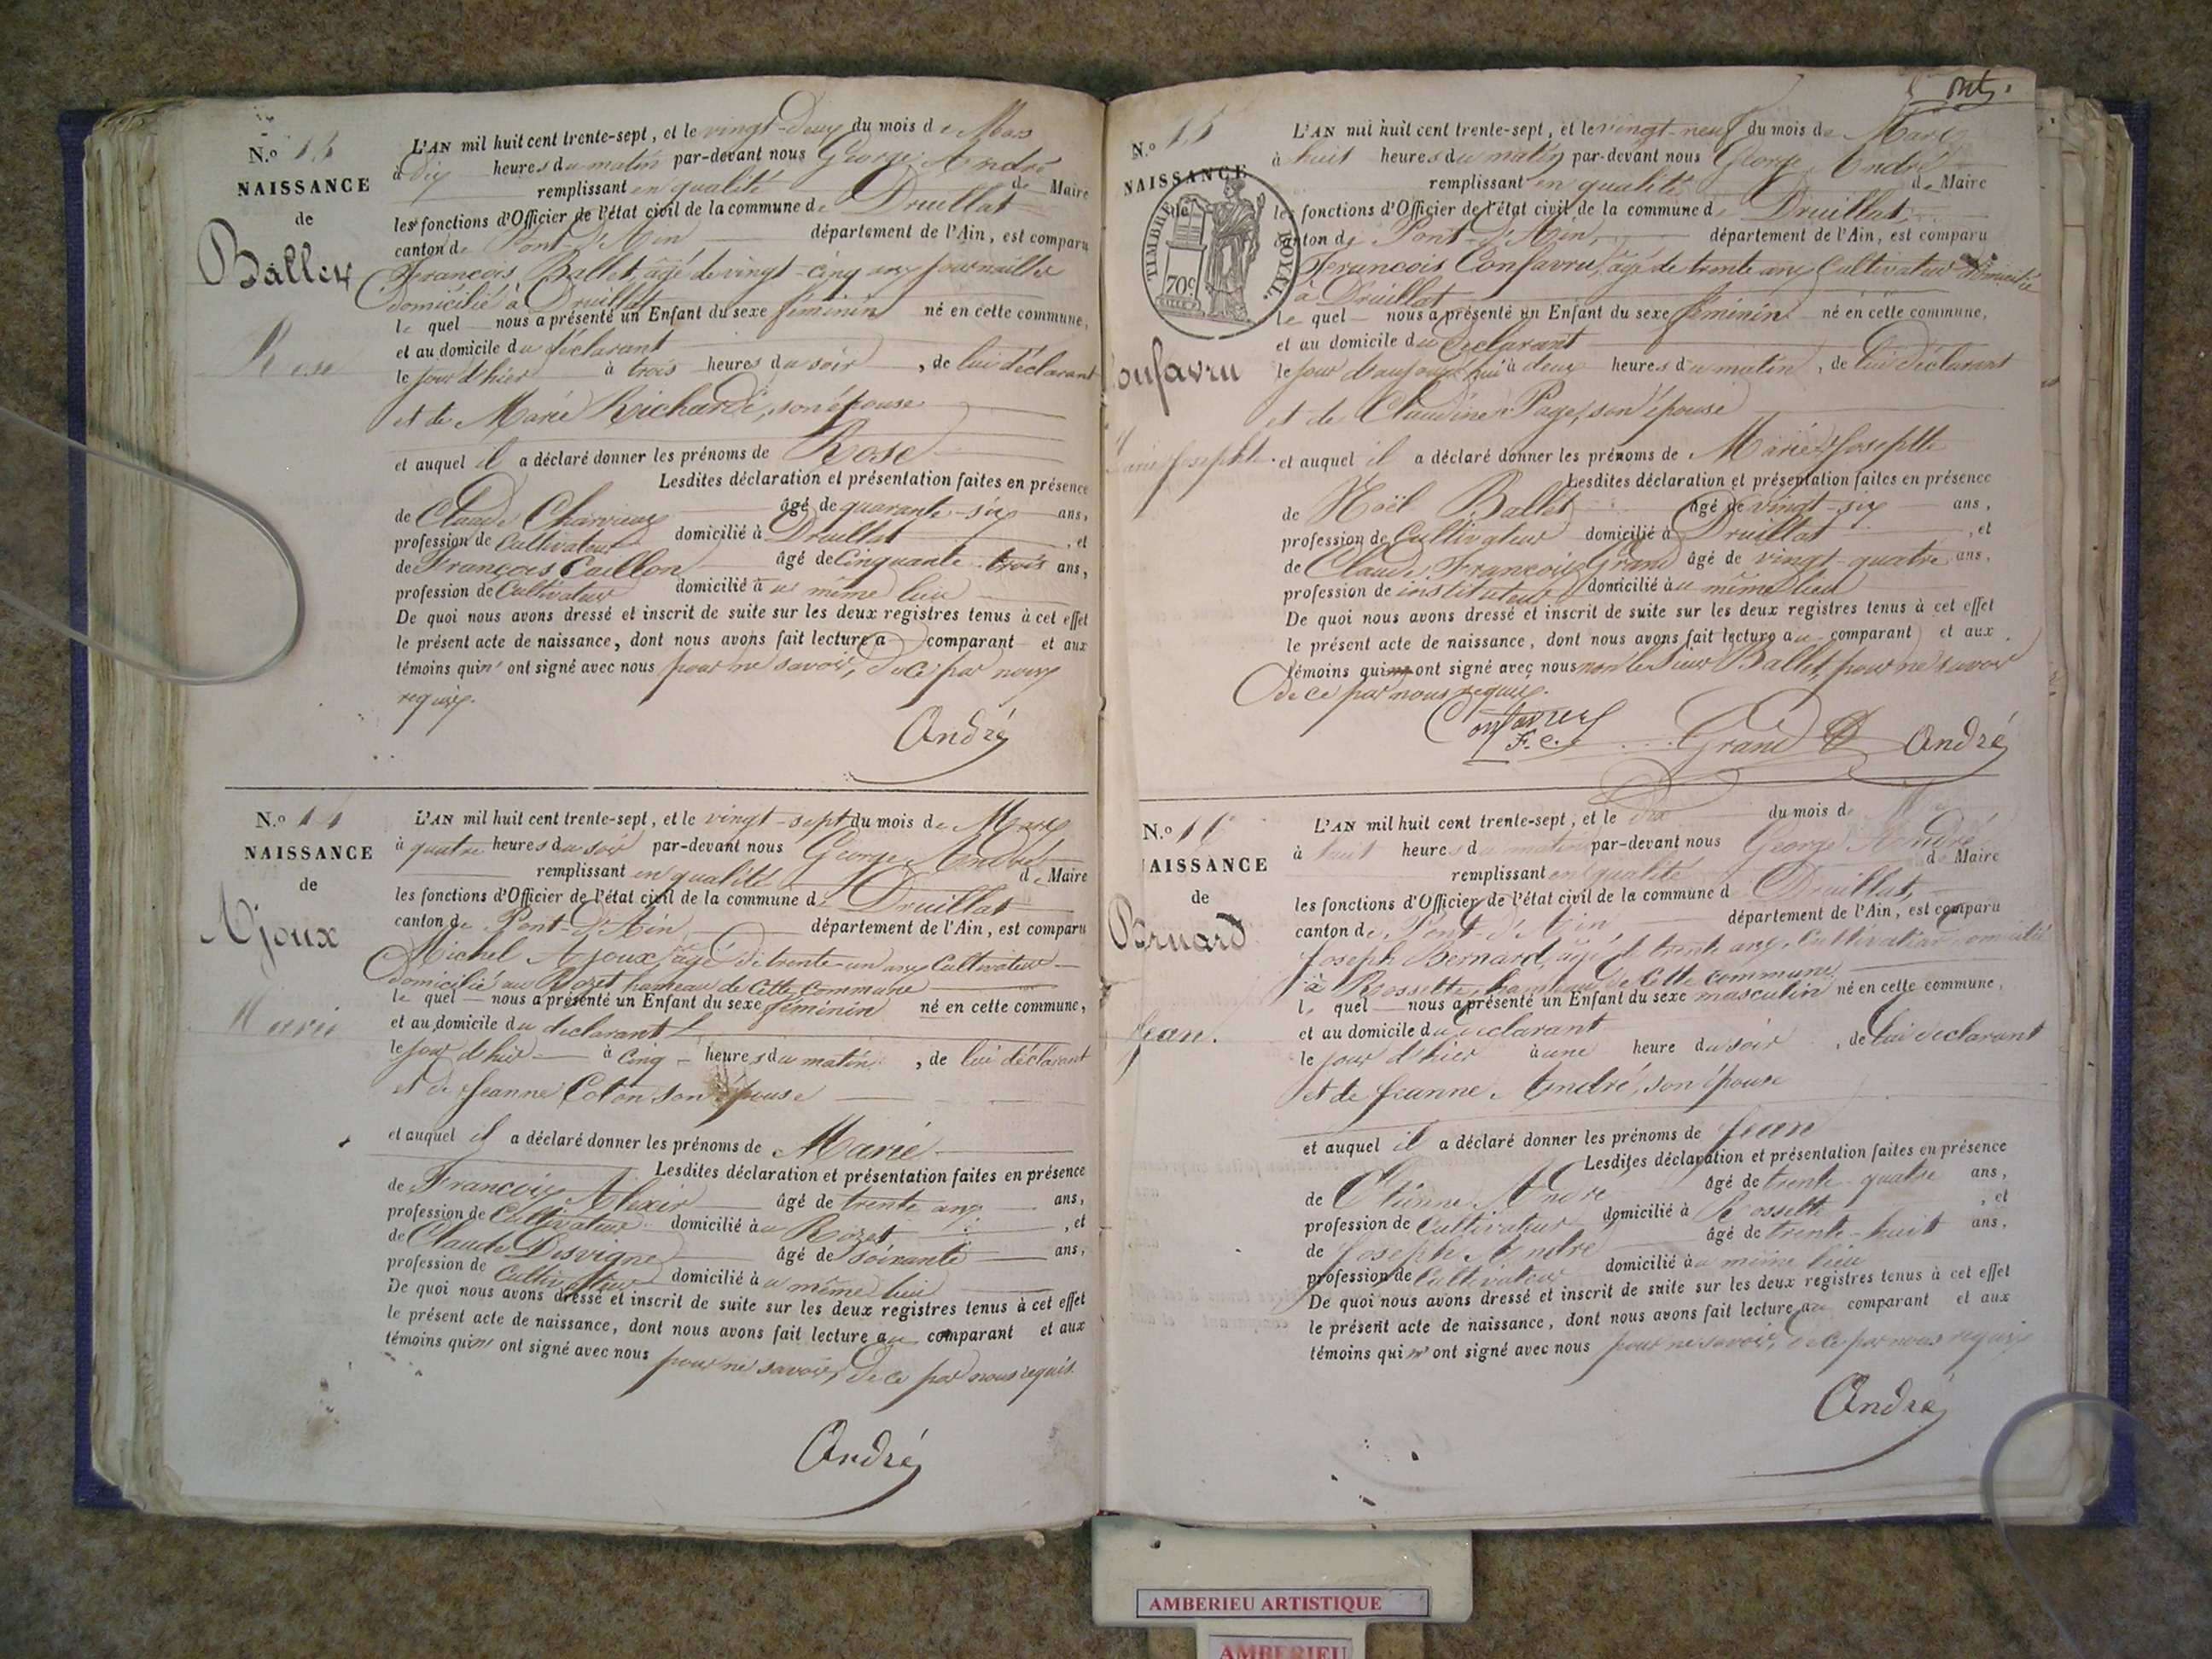 N.o 13
NAISSANCE
de
Ballet
Rose
L'AN mil huit cent trente-sept, et le vingt-deux du mois de Mars
à dix heures du matin par-devant nous George André
remplissant en qualité de Maire
les fonctions d'Officier de l'état civil de la commune de Druillat
canton de Pont-d'Ain département de l'Ain, est comparu
François Ballet, âgé de vingt-cinq ans journalier
domicilié à Druillat
le quel nous a présenté un Enfant du sexe féminin né en cette commune,
et au domicile du déclarant
le jour d'hier à trois heures du soir, de lui déclarant
et de Marie Richard, son épouse
et auquel il a déclaré donner les prénoms de Rose
Lesdites déclaration et présentation faites en présence
de Claude Charvieux âgé de quarante-six ans,
profession de Cultivateur domicilié à Druillat, et
de François Caillon âgé de Cinquante-trois ans,
profession de Cultivateur domicilié au même lieu
De quoi nous avons dressé et inscrit de suite sur les deux registres tenus à cet effet
le présent acte de naissance, dont nous avons fait lecture a comparant et aux
témoins qui n'ont signé avec nous pour ne savoir, de ce par nous
requis.
André
N.o 14
NAISSANCE
de
Ajoux
Marie
L'AN mil huit cent trente-sept, et le vingt-sept du mois de Mars
à quatre heures du soir par-devant nous George André
remplissant en qualité de Maire
les fonctions d'Officier de l'état civil de la commune de Druillat
canton de Pont-d'Ain département de l'Ain, est comparu
Michel Ajoux, âgé de trente-un ans Cultivateur
domicilié au Rozet hameau de Cette Commune
le quel nous a présenté un Enfant du sexe féminin né en cette commune,
et au domicile du déclarant
le jour d'hier à Cinq heures du matin, de lui déclarant
et de Jeanne Coton son épouse
et auquel il a déclaré donner les prénoms de Marie
Lesdites déclaration et présentation faites en présence
de François Alexis âgé de trente ans ans,
profession de Cultivateur domicilié au Rozet, et
de Claude Desvigne âgé de soixante ans,
profession de Cultivateur domicilié au même lieu
De quoi nous avons dressé et inscrit de suite sur les deux registres tenus à cet effet
le présent acte de naissance, dont nous avons fait lecture au comparant et aux
témoins qui n'ont signé avec nous pour ne savoir, de ce par nous requis.
André
N.o 15
NAISSANCE
de
TIMBRE ROYAL
70c
Confavru
Marie Josephte
L'AN mil huit cent trente-sept, et le vingt-neuf du mois de Mars
à huit heures du matin par-devant nous George André
remplissant en qualité de Maire
les fonctions d'Officier de l'état civil de la commune de Druillat
canton de Pont-d'Ain, département de l'Ain, est comparu
François Confavru, âgé de trente ans Cultivateur domicilié
à Druillat
le quel nous a présenté un Enfant du sexe féminin né en cette commune,
et au domicile du déclarant
le jour d'aujourd'hui à deux heures du matin, de lui déclarant
et de Claudine Page, son épouse
et auquel il a déclaré donner les prénoms de Marie Josephte
Lesdites déclaration et présentation faites en présence
de Noël Ballet âgé de vingt-six ans,
profession de Cultivateur domicilié à Druillat, et
de Claude François Grand âgé de vingt-quatre ans,
profession de instituteur domicilié au même lieu
De quoi nous avons dressé et inscrit de suite sur les deux registres tenus à cet effet
le présent acte de naissance, dont nous avons fait lecture au comparant et aux
témoins qui ont signé avec nous non le sieur Ballet, pour ne savoir
de ce par nous requis.
F. C. Grand André
N.o 16
NAISSANCE
de
Bernard
Jean.
L'AN mil huit cent trente-sept, et le dix du mois d
à huit heures du matin par-devant nous George André
remplissant en qualité de Maire
les fonctions d'Officier de l'état civil de la commune d Druillat,
canton de Pont-d'Ain, département de l'Ain, est comparu
Joseph Bernard, âgé de trente ans, Cultivateur domicilié
à Rossette, hameau de Cette Commune,
le quel nous a présenté un Enfant du sexe masculin né en cette commune,
et au domicile du déclarant
le jour d'hier à une heure du soir, de lui déclarant
et de Jeanne André, son épouse
et auquel il a déclaré donner les prénoms de Jean
Lesdites déclaration et présentation faites en présence
de Etienne André âgé de trente-quatre ans,
profession de Cultivateur domicilié à Rossette, et
de Joseph André âgé de trente-huit ans,
profession de Cultivateur domicilié au même lieu
De quoi nous avons dressé et inscrit de suite sur les deux registres tenus à cet effet
le présent acte de naissance, dont nous avons fait lecture au comparant et aux
témoins qui n'ont signé avec nous pour ne savoir, de ce par nous requis
André
AMBERIEU ARTISTIQUE
AMBERIEU